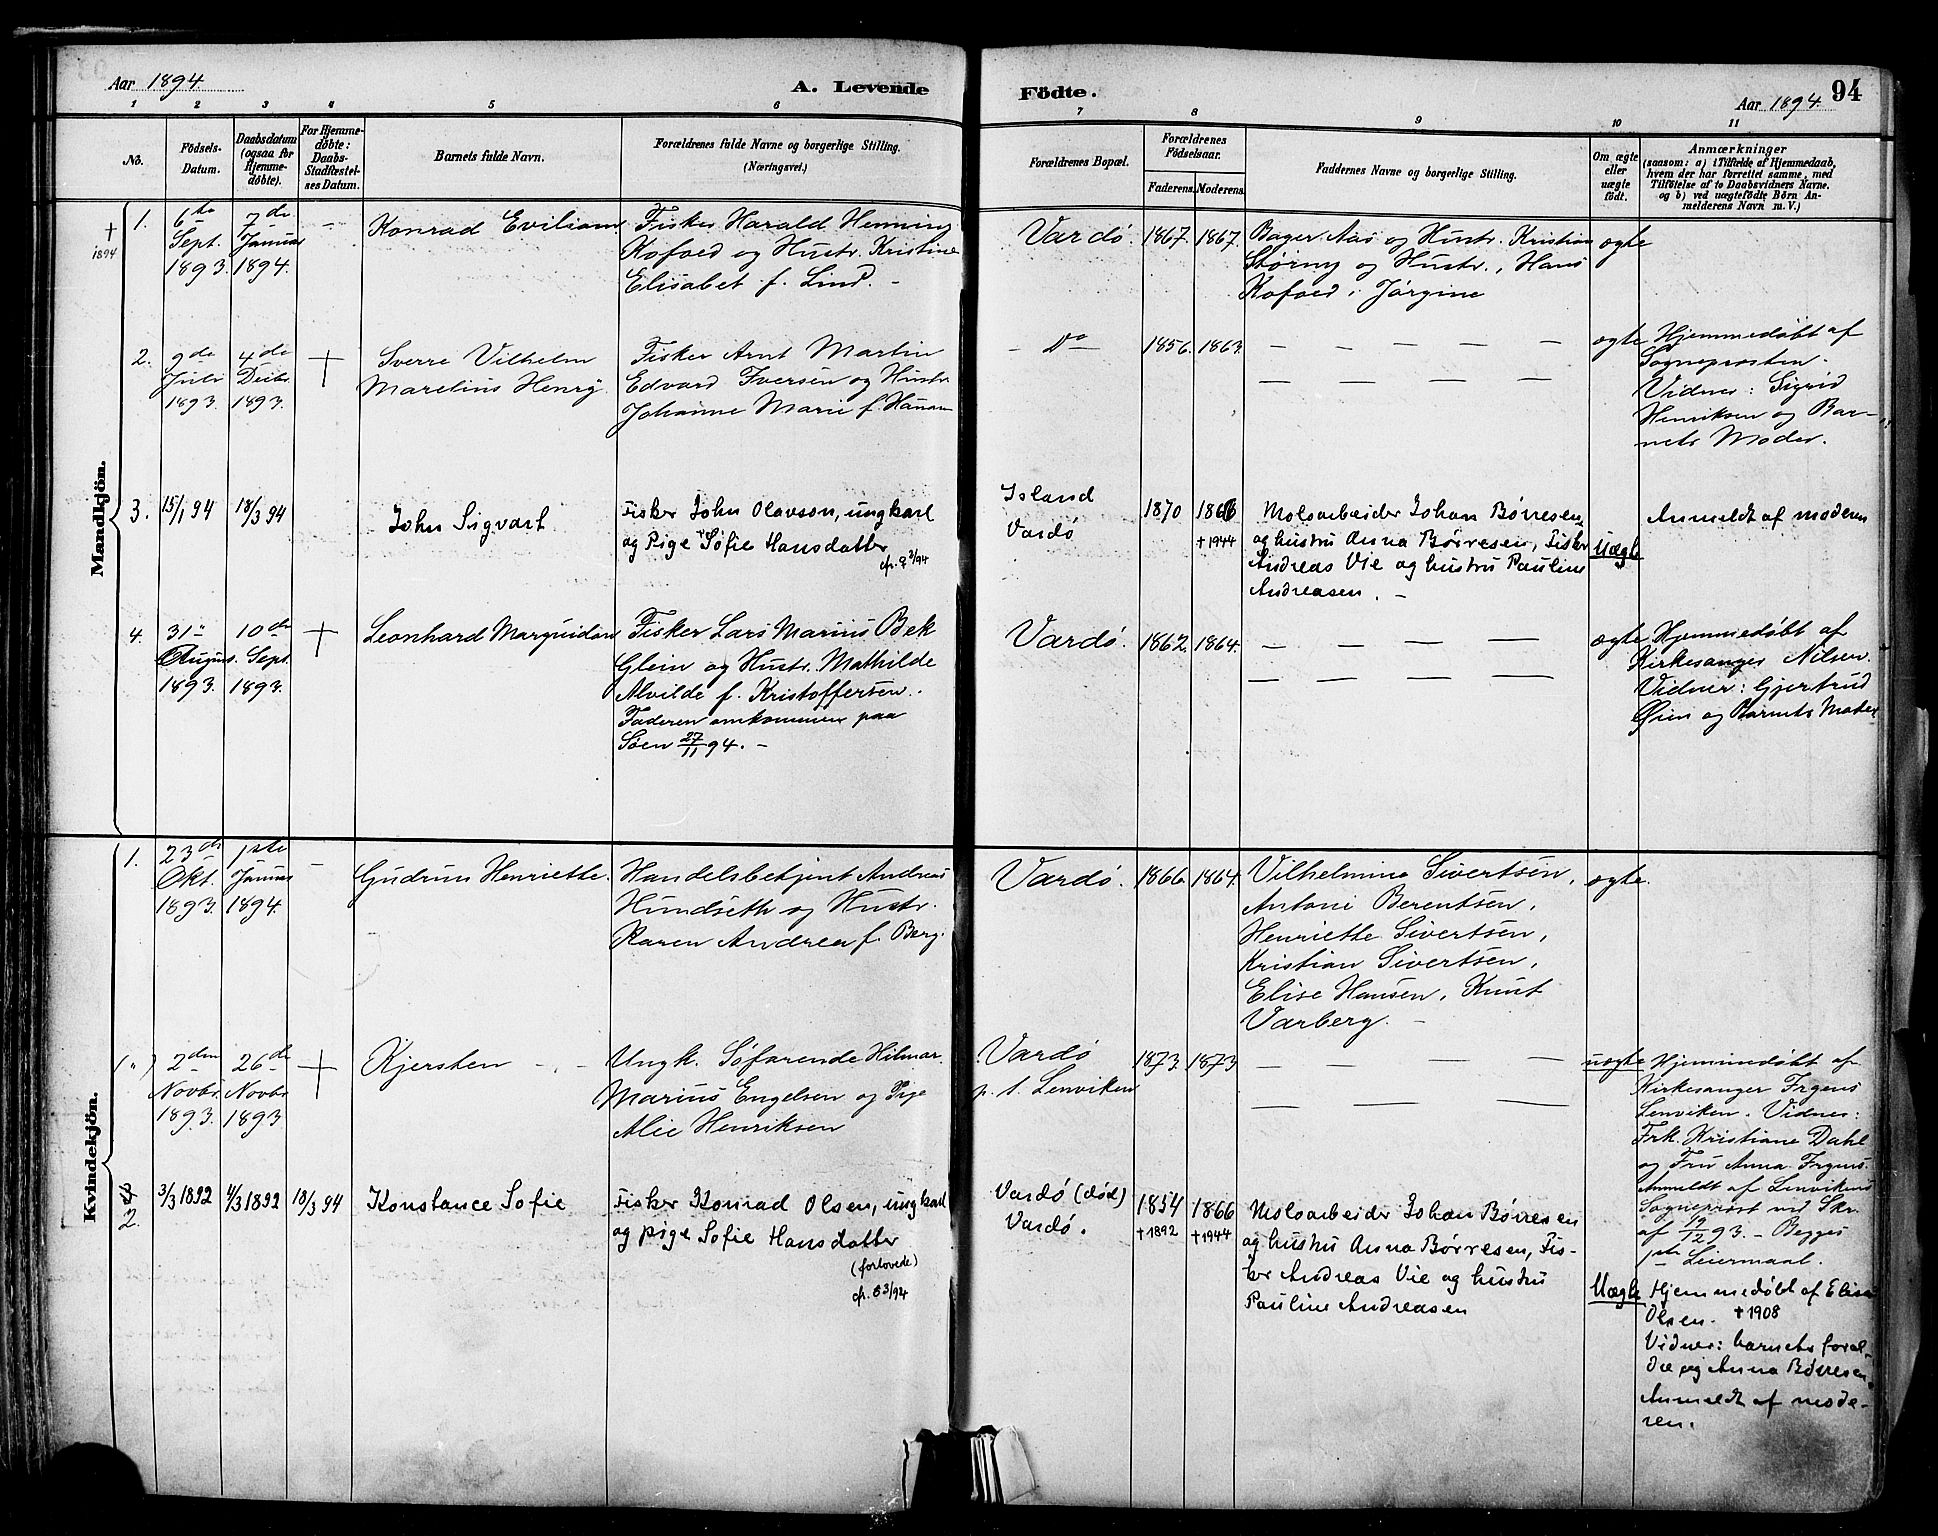 Aar 1894.
A. Levende Födte.
Aar 1894.
94
1 2 3 4 5 6 7 8 9 10 11
No.
Födsels-
Datum.
Daabsdatum
(ogsaa for
Hjemme-
døbte).
For Hjemme-
døbte:
Daabs-
Stadfæstel-
ses Datum.
Barnets fulde Navn.
Forældrenes fulde Navne og borgerlige Stilling.
(Næringsvei.)
Forældrenes Bopæl.
Forældrenes
Fødselsaar.
Faderens. Moderens.
Faddernes Navne og borgerlige Stilling.
Om ægte
eller
uægte
født.
Anmærkninger
(saasom: a) i Tilfælde af Hjemmedaab,
hvem der har forrettet samme, med
Tilføielse af to Daabsvidners Navne.
og b) ved uægtefødte Børn An-
melderens Navn m. V.)
Mandkjön.
† 1894
1.
6te
Sept.
1893.
7de
Januar
1894.
–
Konrad Evilian
Fisker Harald Henning
Kofoed og Hustr. Kristine
Elisabet f. Lind. -
Vardö.
1867. 1867.
Bager Aas og Hustr. Kristian
Störny og Hustr., Hans
Kofoed, Jörgine
ægte
2.
9de
Juli
1893.
4de
Decbr.
1893.
†
Sverre Vilhelm
Marelius Henry.
Fisker Arnt Martin
Edvard Iversen og Hustr.
Johanne Marie f. Hansen
- Do -
1856. 1863.
— — — — —
— — — —
ægte
Hjemmedøbt af
Sogneprosten.
Vidner: Sigrid
Henriksen og Bar-
nets Moder.
3.
15/1 94
18/3 94
John Sigvart
Fisker John Olavson, ungkarl
og Pige Sofie Hansdatter
cfr. ♀ 3/94
Island
Vardö
1870 1866
† 1944
Moloarbeider Johan Børresen
og hustru Anna Børresen, Fisker
Andreas Vie og hustru Pauline
Andreasen. -
Uægte
Anmeldt af moderen
4.
31te
August.
1893.
10de
Sept.
1893.
†
Leonhard Marquidan
Fisker Lars Marius Bek
Glein og Hustr. Mathilde
Alvilde f. Kristoffersen.
Faderen omkommen paa
Søen 27/11 94. -
Vardö.
1862. 1864.
— — — —
— — — —
ægte
Hjemmedøbt af
Kirkesanger Nilsen.
Vidner: Gjertrud
Øien og Barnets Moder
Kvindekjön.
1.
23de
Okt.
1893.
1ste
Januar
1894.
–
Gudrun Henriette.
Handelsbetjent Andreas
Hundseth og Hustr.
Karen Andrea f. Berg.
Vardö.
1866. 1864.
Vilhelmine Sivertsen,
Antoni Berentsen,
Henriette Sivertsen,
Kristian Sivertsen,
Elise Hansen, Knut
Varberg. -
ægte.
(")
2den
Novbr.
1893.
26de
Novbr.
1893
†
Kjersten - . -
Ungk. Søfarende Hilmar
Marius Engelsen og Pige
Alie Henriksen
Vardö
p. t. Lenviken
1873. 1873
— — — —
— — —
uægte
Hjemmedøbt af
Kirkesanger Irgens
Lenviken. Vidner:
Frk. Kristiane Dahl
og Fru Anna Irgens.
Anmeldt af Lenvikens
Sogneprost ved Skr.
af 19/12 93. - Begges
1ste Leiermaal.
2.
3/3 1892
4/3 1892
18/3 94
Konstance Sofie
Fisker Konrad Olsen, ungkarl
og pige Sofie Hansdatter
(forlovede)
cfr. ♂ 3/94
Vardö (död)
Vardö.
1854 1866
† 1892 † 1944
Moloarbeider Johan Børresen
og hustru Anna Børresen, Fis-
ker Andreas Vie og hustru
Pauline Andreasen
Uægte
Hjemmedøbt af Elisa
Olsen. † 1908
Vidner: barnets foræl-
dre og Anna Børresen.
Anmeldt af mode-
ren.